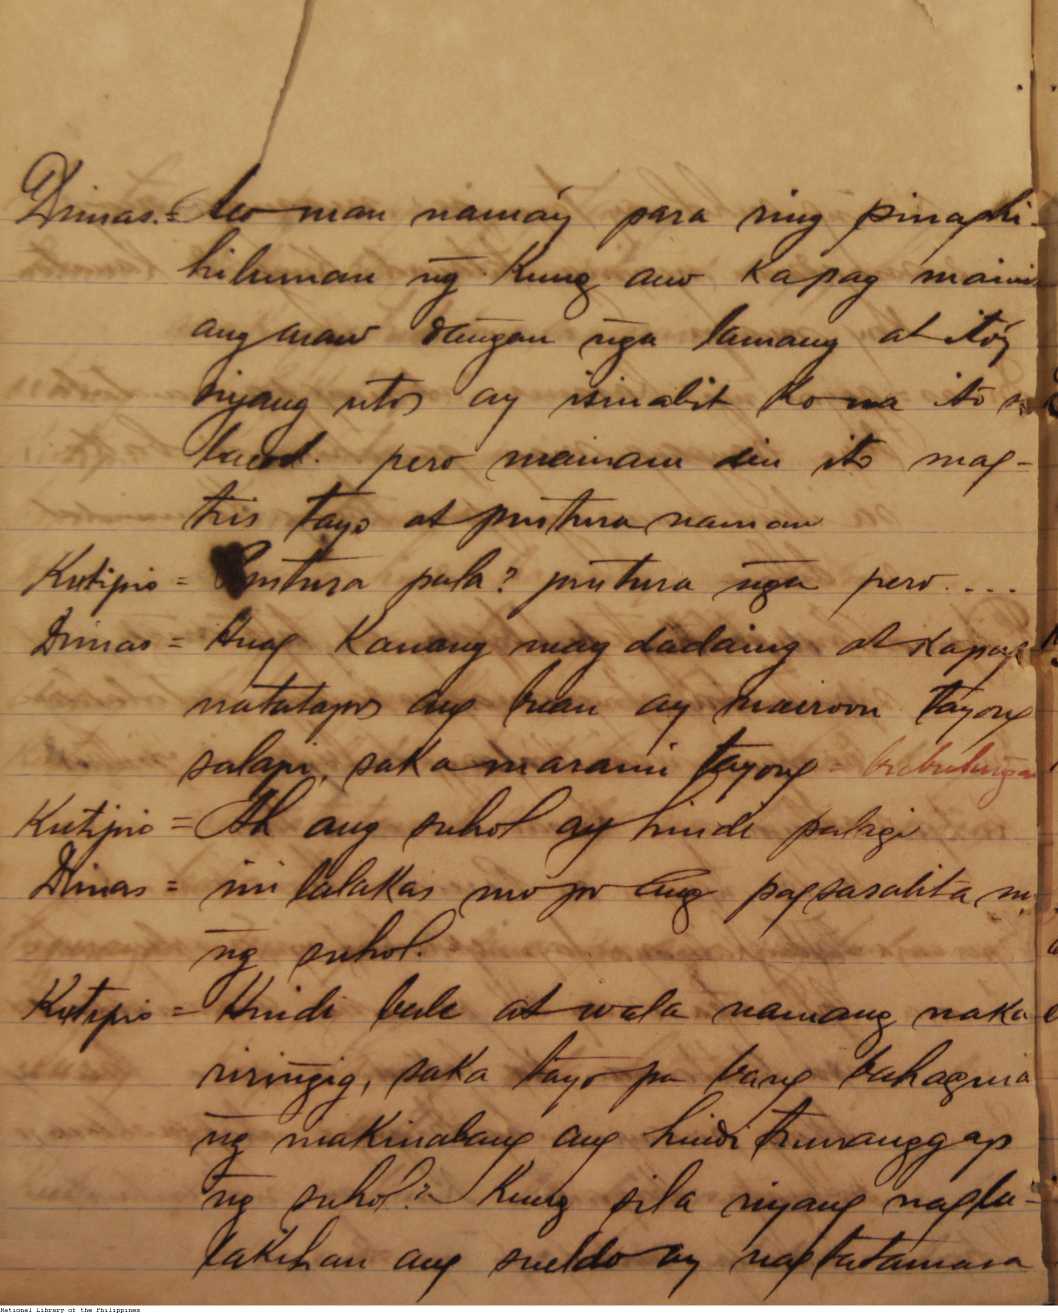 Dimas. = Ico man namáy para ring pinaghi-
hiluman ng kung anó kapag mainit
ang araw daungan nga lamang at itóy
niyang utos ay isinabit ko na ito sa
bacod. pero mainam din ito mag-
tris tayo at prutura naman
Kutipio = Prutura pala? prutura nga pero....
Dimas = Huag kanang may dadaing at kapag
natatapos ang buan ay mairoon tayong
salapi, saka marami tayong = bubulungan
Kutipio = Ah ang suhol ay hindi palagi
Dimas = inilalakas mo po ang pagsasalita
ng suhol.
Kutipio = Hindi bale at wala namang naka
riringig, saka tayo pa bang bahagui
ng makinabang ang hindi tumanggap
ng suhol? Kung sila niyang nagla-
lakihan ang sueldo ay nagtatamasa
National Library of the Philippines